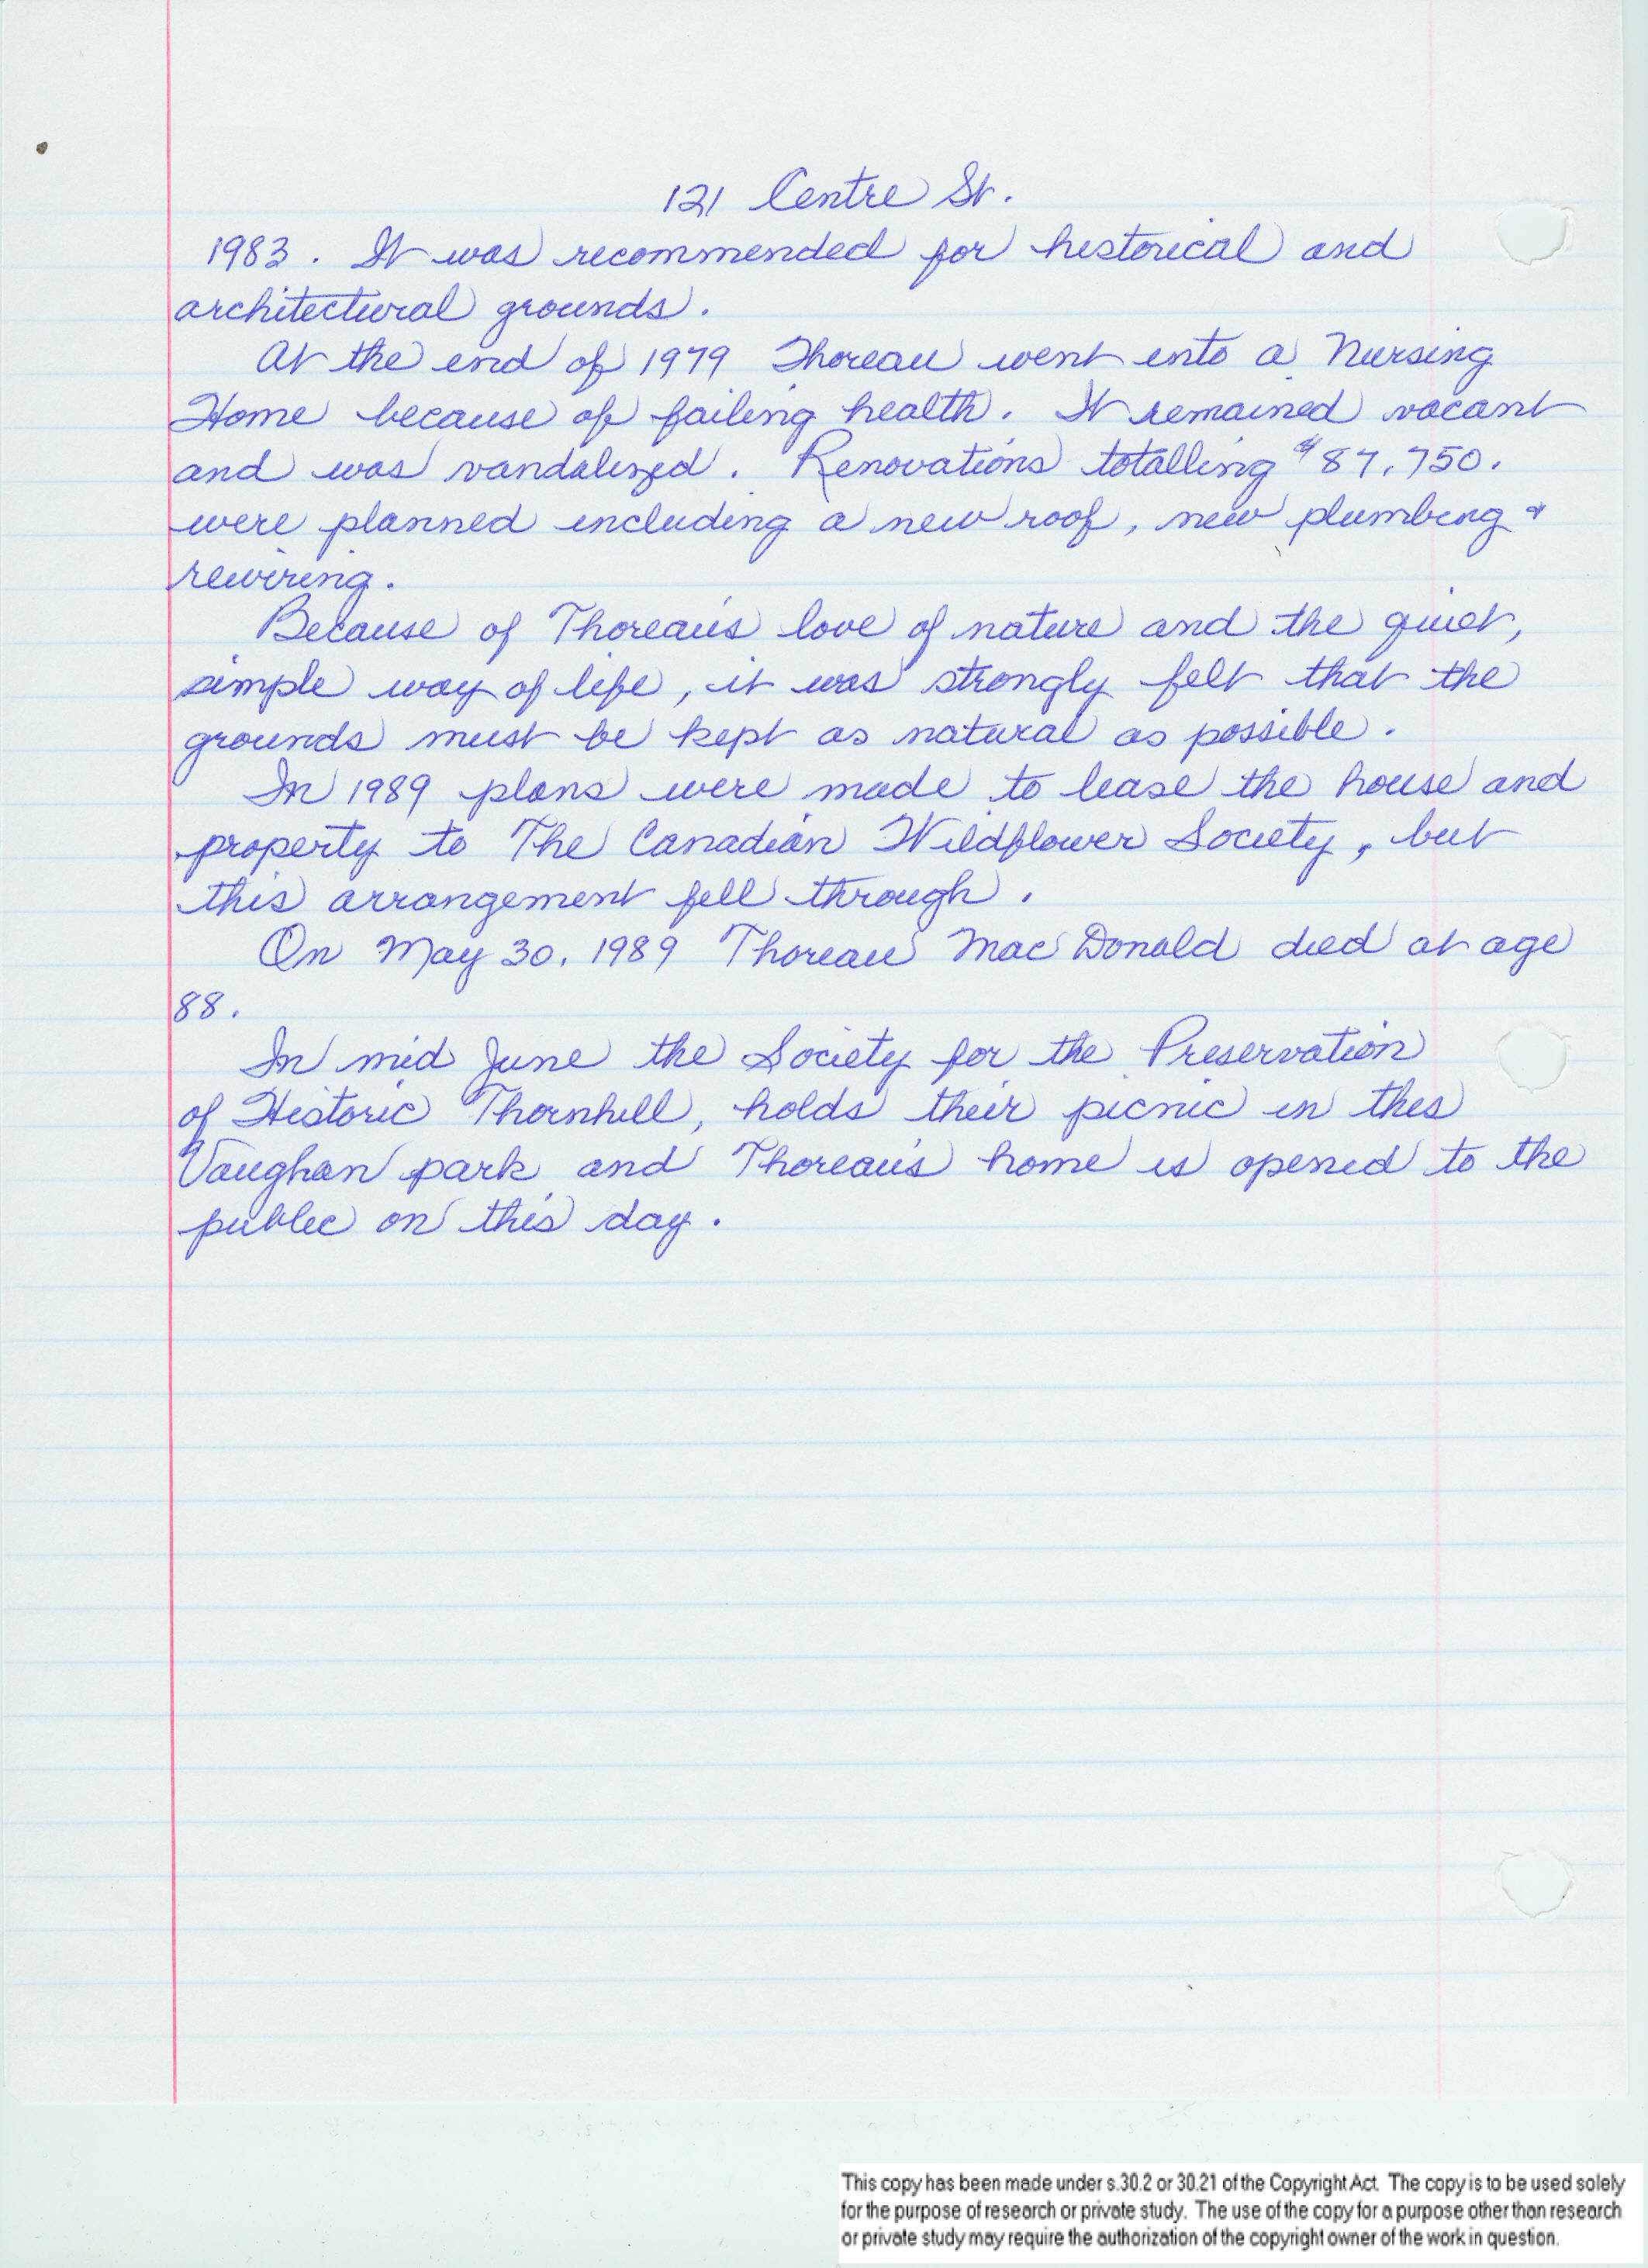 121 Centre St.
1983. It was recommended for historical and
architectural grounds.
At the end of 1979 Thoreau went into a Nursing
Home because of failing health. It remained vacant
and was vandalized. Renovations totalling $87,750.
were planned including a new roof, new plumbing &
rewiring.
Because of Thoreau's love of nature and the quiet,
simple way of life, it was strongly felt that the
grounds must be kept as natural as possible.
In 1989 plans were made to lease the house and
property to The Canadian Wildflower Society, but
this arrangement fell through.
On May 30, 1989 Thoreau MacDonald died at age
88.
In mid June the Society for the Preservation
of Historic Thornhill, holds their picnic in this
Vaughan park and Thoreau's home is opened to the
public on this day.
This copy has been made under s.30.2 or 30.21 of the Copyright Act. The copy is to be used solely
for the purpose of research or private study. The use of the copy for a purpose other than research
or private study may require the authorization of the copyright owner of the work in question.